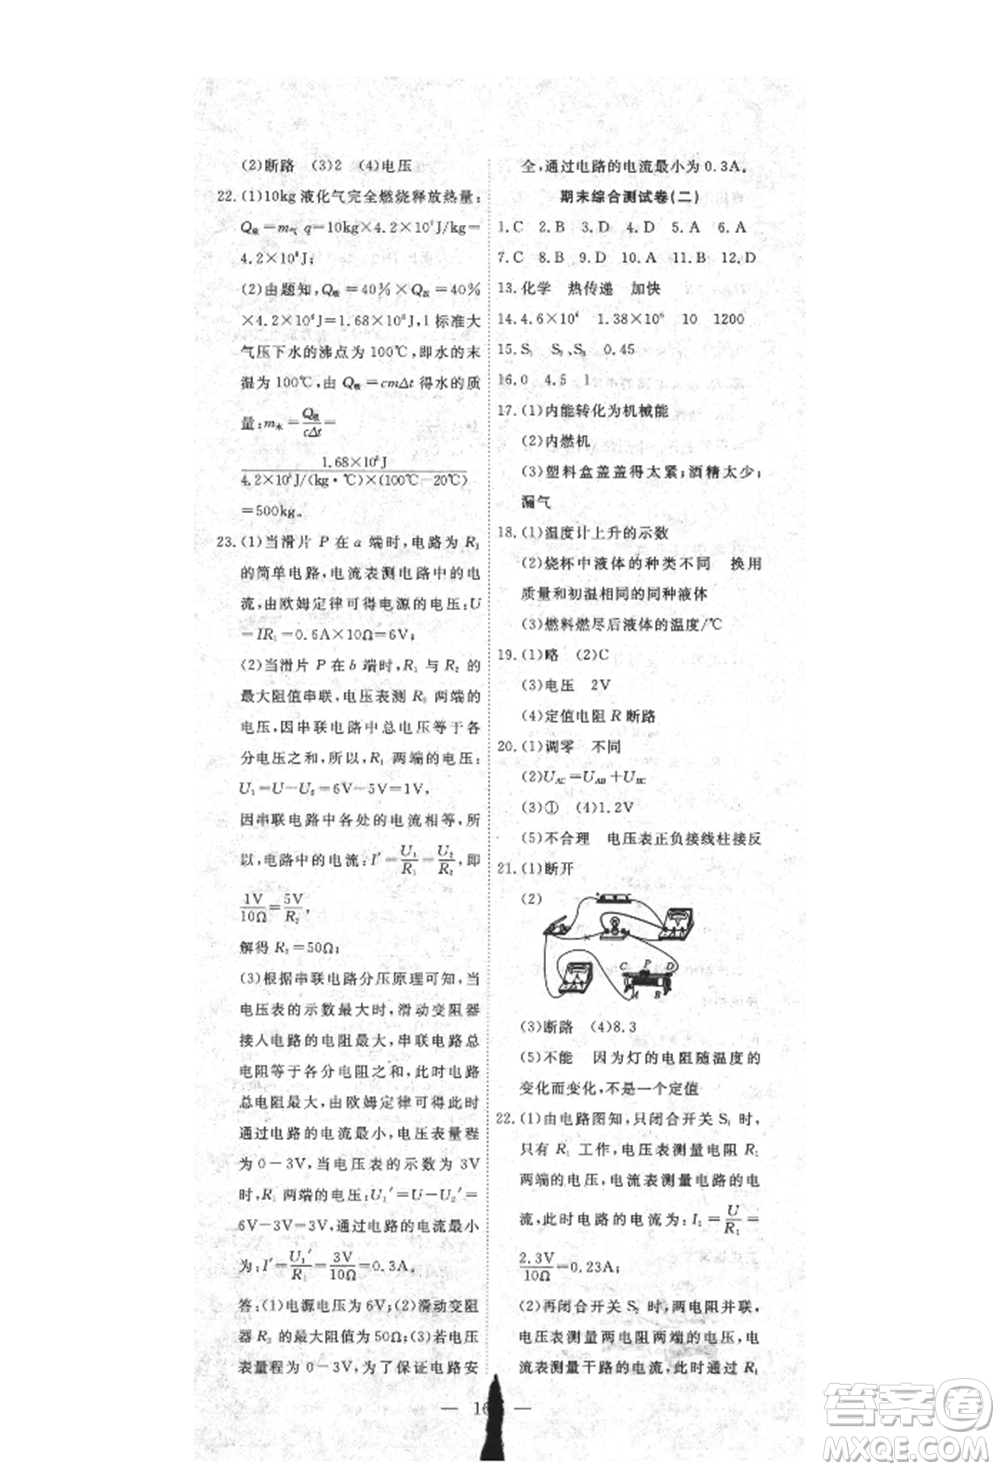 (2)断路 (3)2 (4)电压
22.(1)10kg液化气完全燃烧释放热量:
Q放=m气 q=10kg×4.2×10⁷J/kg=
4.2×10⁸J;
(2)由题知,Q吸=40%×Q放=40%
×4.2×10⁸J=1.68×10⁸J,1标准大
气压下水的沸点为100℃,即水的末
温为100℃,由Q吸=cmΔt得水的质
量:m水=Q吸/cΔt=
1.68×10⁸J/4.2×10³J/(kg·℃)×(100℃-20℃)
=500kg。
23.(1)当滑片 P 在 a 端时,电路为 R₁
的简单电路,电流表测电路中的电
流,由欧姆定律可得电源的电压:U
=IR₁=0.6A×10Ω=6V;
(2)当滑片 P 在 b 端时,R₁ 与 R₂ 的
最大阻值串联,电压表测 R₂ 两端的
电压,因串联电路中总电压等于各
分电压之和,所以,R₁ 两端的电压:
U₁=U-U₂=6V-5V=1V,
因串联电路中各处的电流相等,所
以,电路中的电流:I'=U₁/R₁=U₂/R₂,即
1V/10Ω=5V/R₂,
解得 R₂=50Ω;
(3)根据串联电路分压原理可知,当
电压表的示数最大时,滑动变阻器
接入电路的电阻最大,串联电路总
电阻等于各分电阻之和,此时电路
总电阻最大,由欧姆定律可得此时
通过电路的电流最小,电压表量程
为0-3V,当电压表的示数为3V
时,R₁ 两端的电压:U₁'=U-U₂'=
6V-3V=3V,通过电路的电流最小
为:I'=U₁'/R₁=3V/10Ω=0.3A。
答:(1)电源电压为6V;(2)滑动变阻
器 R₂ 的最大阻值为50Ω;(3)若电压
表量程为0-3V,为了保证电路安
全,通过电路的电流最小为0.3A。
期末综合测试卷(二)
1.C 2.B 3.D 4.D 5.A 6.A
7.C 8.B 9.D 10.A 11.B 12.D
13.化学 热传递 加快
14.4.6×10⁶ 1.38×10⁸ 10 1200
15.S₁ S₂、S₃ 0.45
16.0 4.5 1
17.(1)内能转化为机械能
(2)内燃机
(3)塑料盒盖盖得太紧;酒精太少;
漏气
18.(1)温度计上升的示数
(2)烧杯中液体的种类不同 换用
质量和初温相同的同种液体
(3)燃料燃尽后液体的温度/℃
19.(1)略 (2)C
(3)电压 2V
(4)定值电阻 R 断路
20.(1)调零 不同
(2)U_AC=U_AB+U_BC
(3)① (4)1.2V
(5)不合理 电压表正负接线柱接反
21.(1)断开
(2)
C P D
A B
(3)断路 (4)8.3
(5)不能 因为灯的电阻随温度的
变化而变化,不是一个定值
22.(1)由电路图知,只闭合开关 S₁ 时,
只有 R₁ 工作,电压表测量电阻 R₁
两端的电压,电流表测量电路的电
流,此时电路的电流为:I₁=U/R₁=
2.3V/10Ω=0.23A;
(2)再闭合开关 S₂ 时,两电阻并联,
电压表测量两电阻两端的电压,电
流表测量干路的电流,此时通过 R₁
答案卷
MXQE.COM